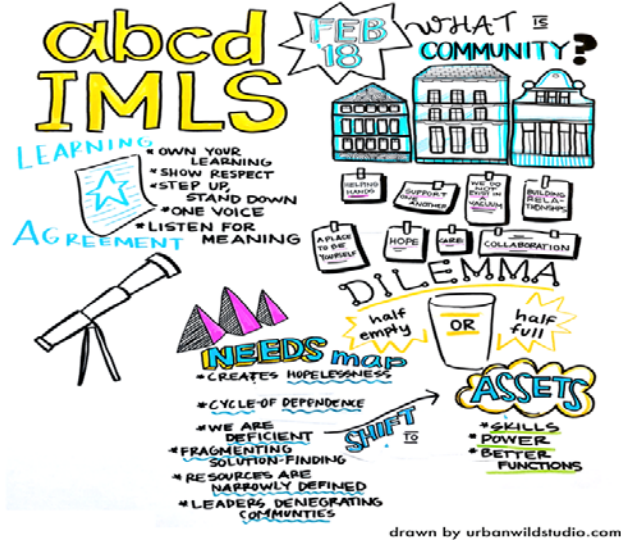 abcd
IMLS
FEB
'18
WHAT IS
COMMUNITY?
LEARNING
AGREEMENT
* OWN YOUR
LEARNING
* SHOW RESPECT
* STEP UP,
STAND DOWN
* ONE VOICE
* LISTEN FOR
MEANING
HELPING
HANDS
SUPPORT
ONE
ANOTHER
WE DO
NOT
EXIST IN
A
VACUUM
BUILDING
RELA-
TIONSHIPS
A PLACE
TO BE
YOURSELF
HOPE
CARE
COLLABORATION
DILEMMA
half
empty
OR
half
full
NEEDS map
* CREATES HOPELESSNESS
* CYCLE-OF DEPENDENCE
* WE ARE
DEFICIENT
* FRAGMENTING
SOLUTION-FINDING
* RESOURCES ARE
NARROWLY DEFINED
* LEADERS DENEGRATING
COMMUNTIES
SHIFT
TO
ASSETS
* SKILLS
* POWER
* BETTER
FUNCTIONS
drawn by urbanwildstudio.com